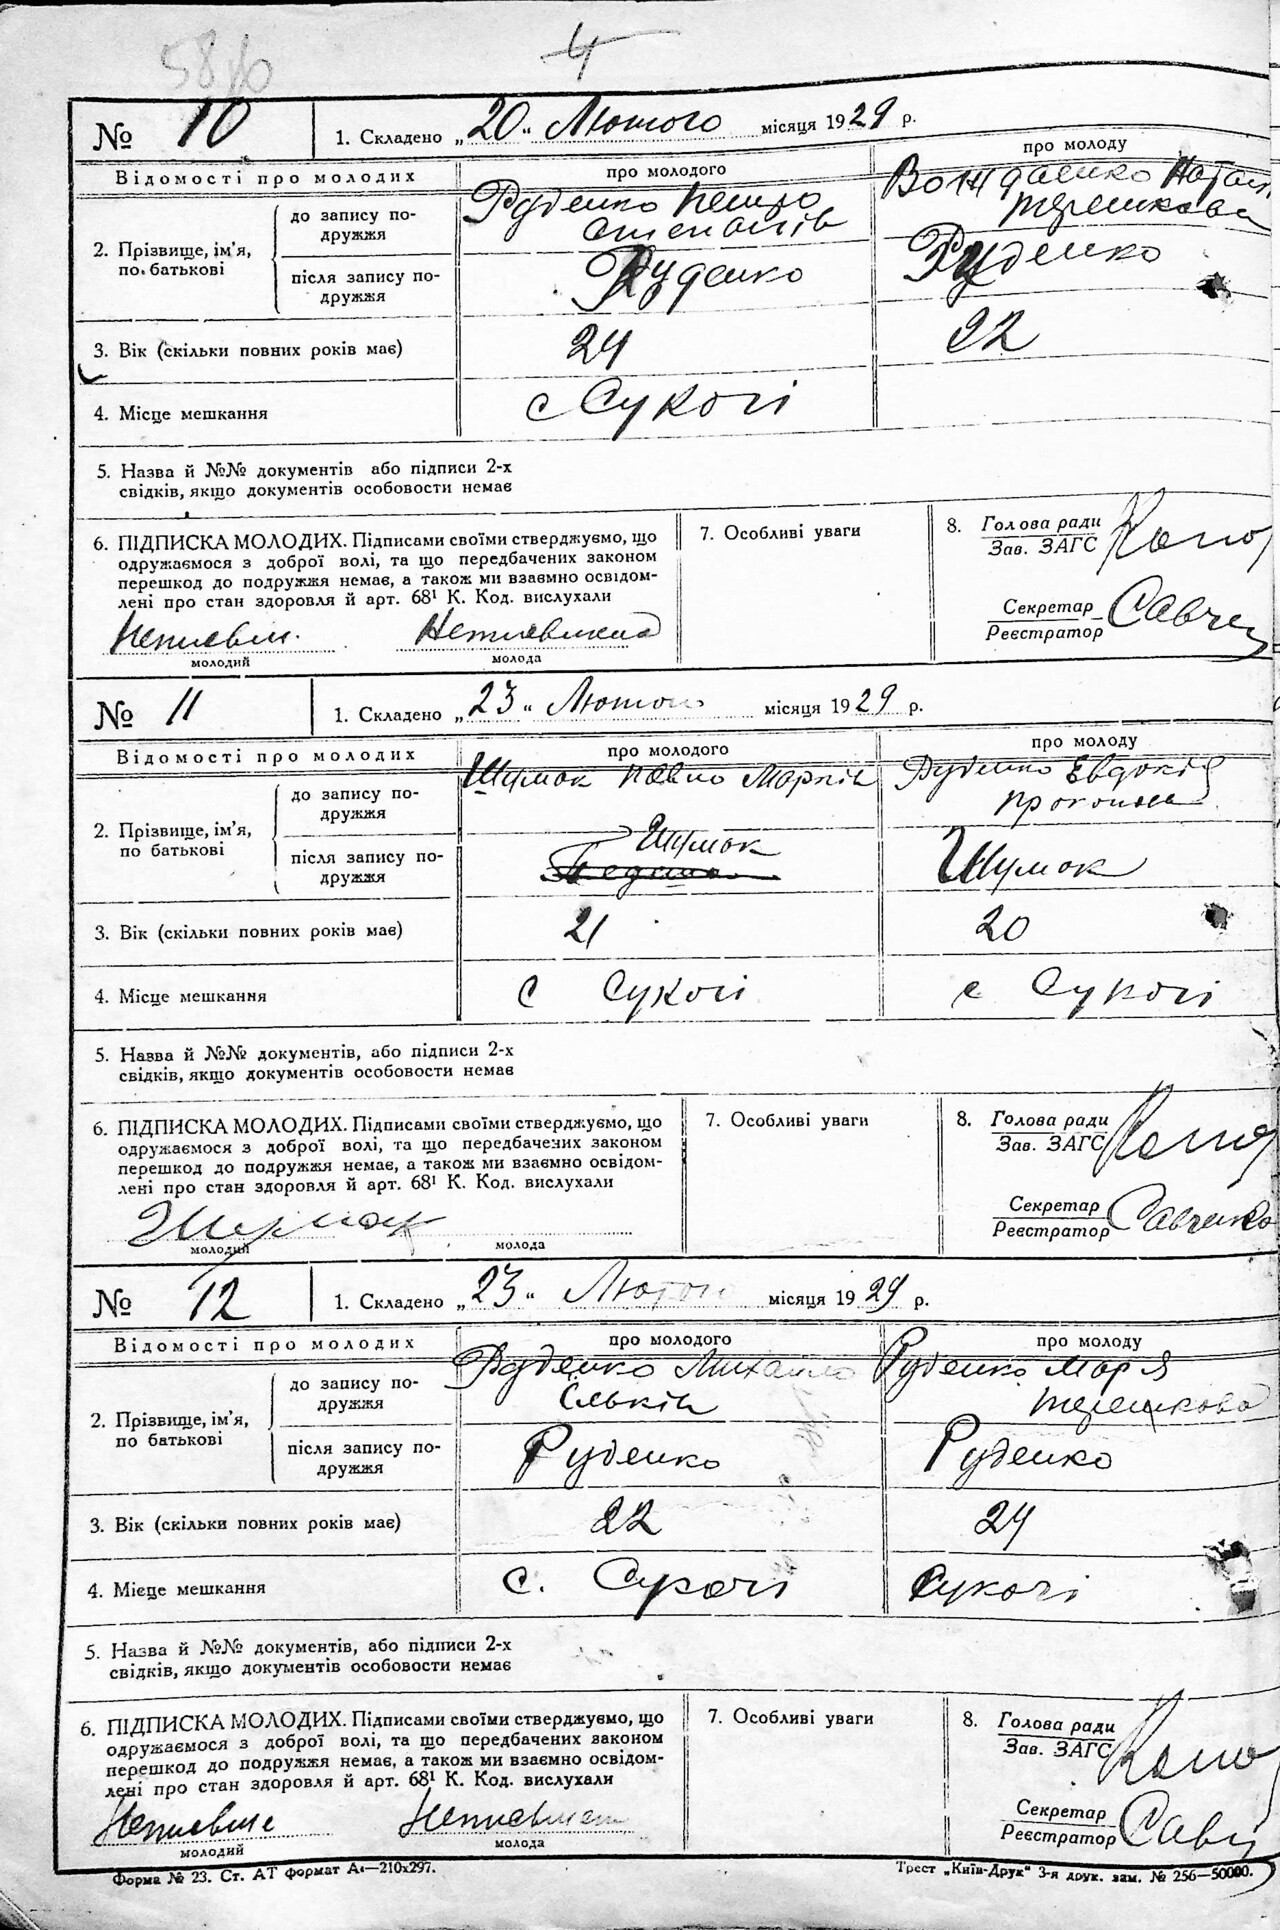 58
4
№ 10 1. Складено „20“ Лютого місяця 1929 р.
Відомості про молодих про молодого про молоду
2. Прізвище, ім’я, по батькові
до запису по-
дружжя
Руденко Петро
Степанів
Терешкова
після запису по-
дружжя
Руденко Руденко
3. Вік (скільки повних років має) 24 22
4. Місце мешкання с Сукачі
5. Назва й №№ документів або підписи 2-х
свідків, якщо документів особовости немає
6. ПІДПИСКА МОЛОДИХ. Підписами своїми стверджуємо, що
одружаємося з доброї волі, та що передбачених законом
перешкод до подружжя немає, а також ми взаємно освідом-
лені про стан здоровля й арт. 68¹ К. Код. вислухали
молодий молода
7. Особливі уваги
8. Голова ради
Зав. ЗАГС
Секретар
Реєстратор
№ 11 1. Складено „23“ Лютого місяця 1929 р.
Відомості про молодих про молодого про молоду
2. Прізвище, ім’я,
по батькові
до запису по-
дружжя
Шумок Павло Марків Руденко Евдокія
після запису по-
дружжя
Шумок Шумок
3. Вік (скільки повних років має) 21 20
4. Місце мешкання с Сукачі с Сукачі
5. Назва й №№ документів, або підписи 2-х
свідків, якщо документів особовости немає
6. ПІДПИСКА МОЛОДИХ. Підписами своїми стверджуємо, що
одружаємося з доброї волі, та що передбачених законом
перешкод до подружжя немає, а також ми взаємно освідом-
лені про стан здоровля й арт. 68¹ К. Код. вислухали
Шумок
молодий молода
7. Особливі уваги
8. Голова ради
Зав. ЗАГС
Секретар
Реєстратор Савченко
№ 12 1. Складено „23“ Лютого місяця 1929 р.
Відомості про молодих про молодого про молоду
2. Прізвище, ім’я,
по батькові
до запису по-
дружжя
Руденко Михайло Руденко Марія
Ільків Терешкова
після запису по-
дружжя
Руденко Руденко
3. Вік (скільки повних років має) 22 24
4. Місце мешкання с. Сукачі Сукачі
5. Назва й №№ документів, або підписи 2-х
свідків, якщо документів особовости немає
6. ПІДПИСКА МОЛОДИХ. Підписами своїми стверджуємо, що
одружаємося з доброї волі, та що передбачених законом
перешкод до подружжя немає, а також ми взаємно освідом-
лені про стан здоровля й арт. 68¹ К. Код. вислухали
молодий молода
7. Особливі уваги
8. Голова ради
Зав. ЗАГС
Секретар
Реєстратор
Форма № 23. Ст. АТ формат А₄—210х297.
Трест „Київ-Друк“ 3-я друк. зам. № 256—50000.